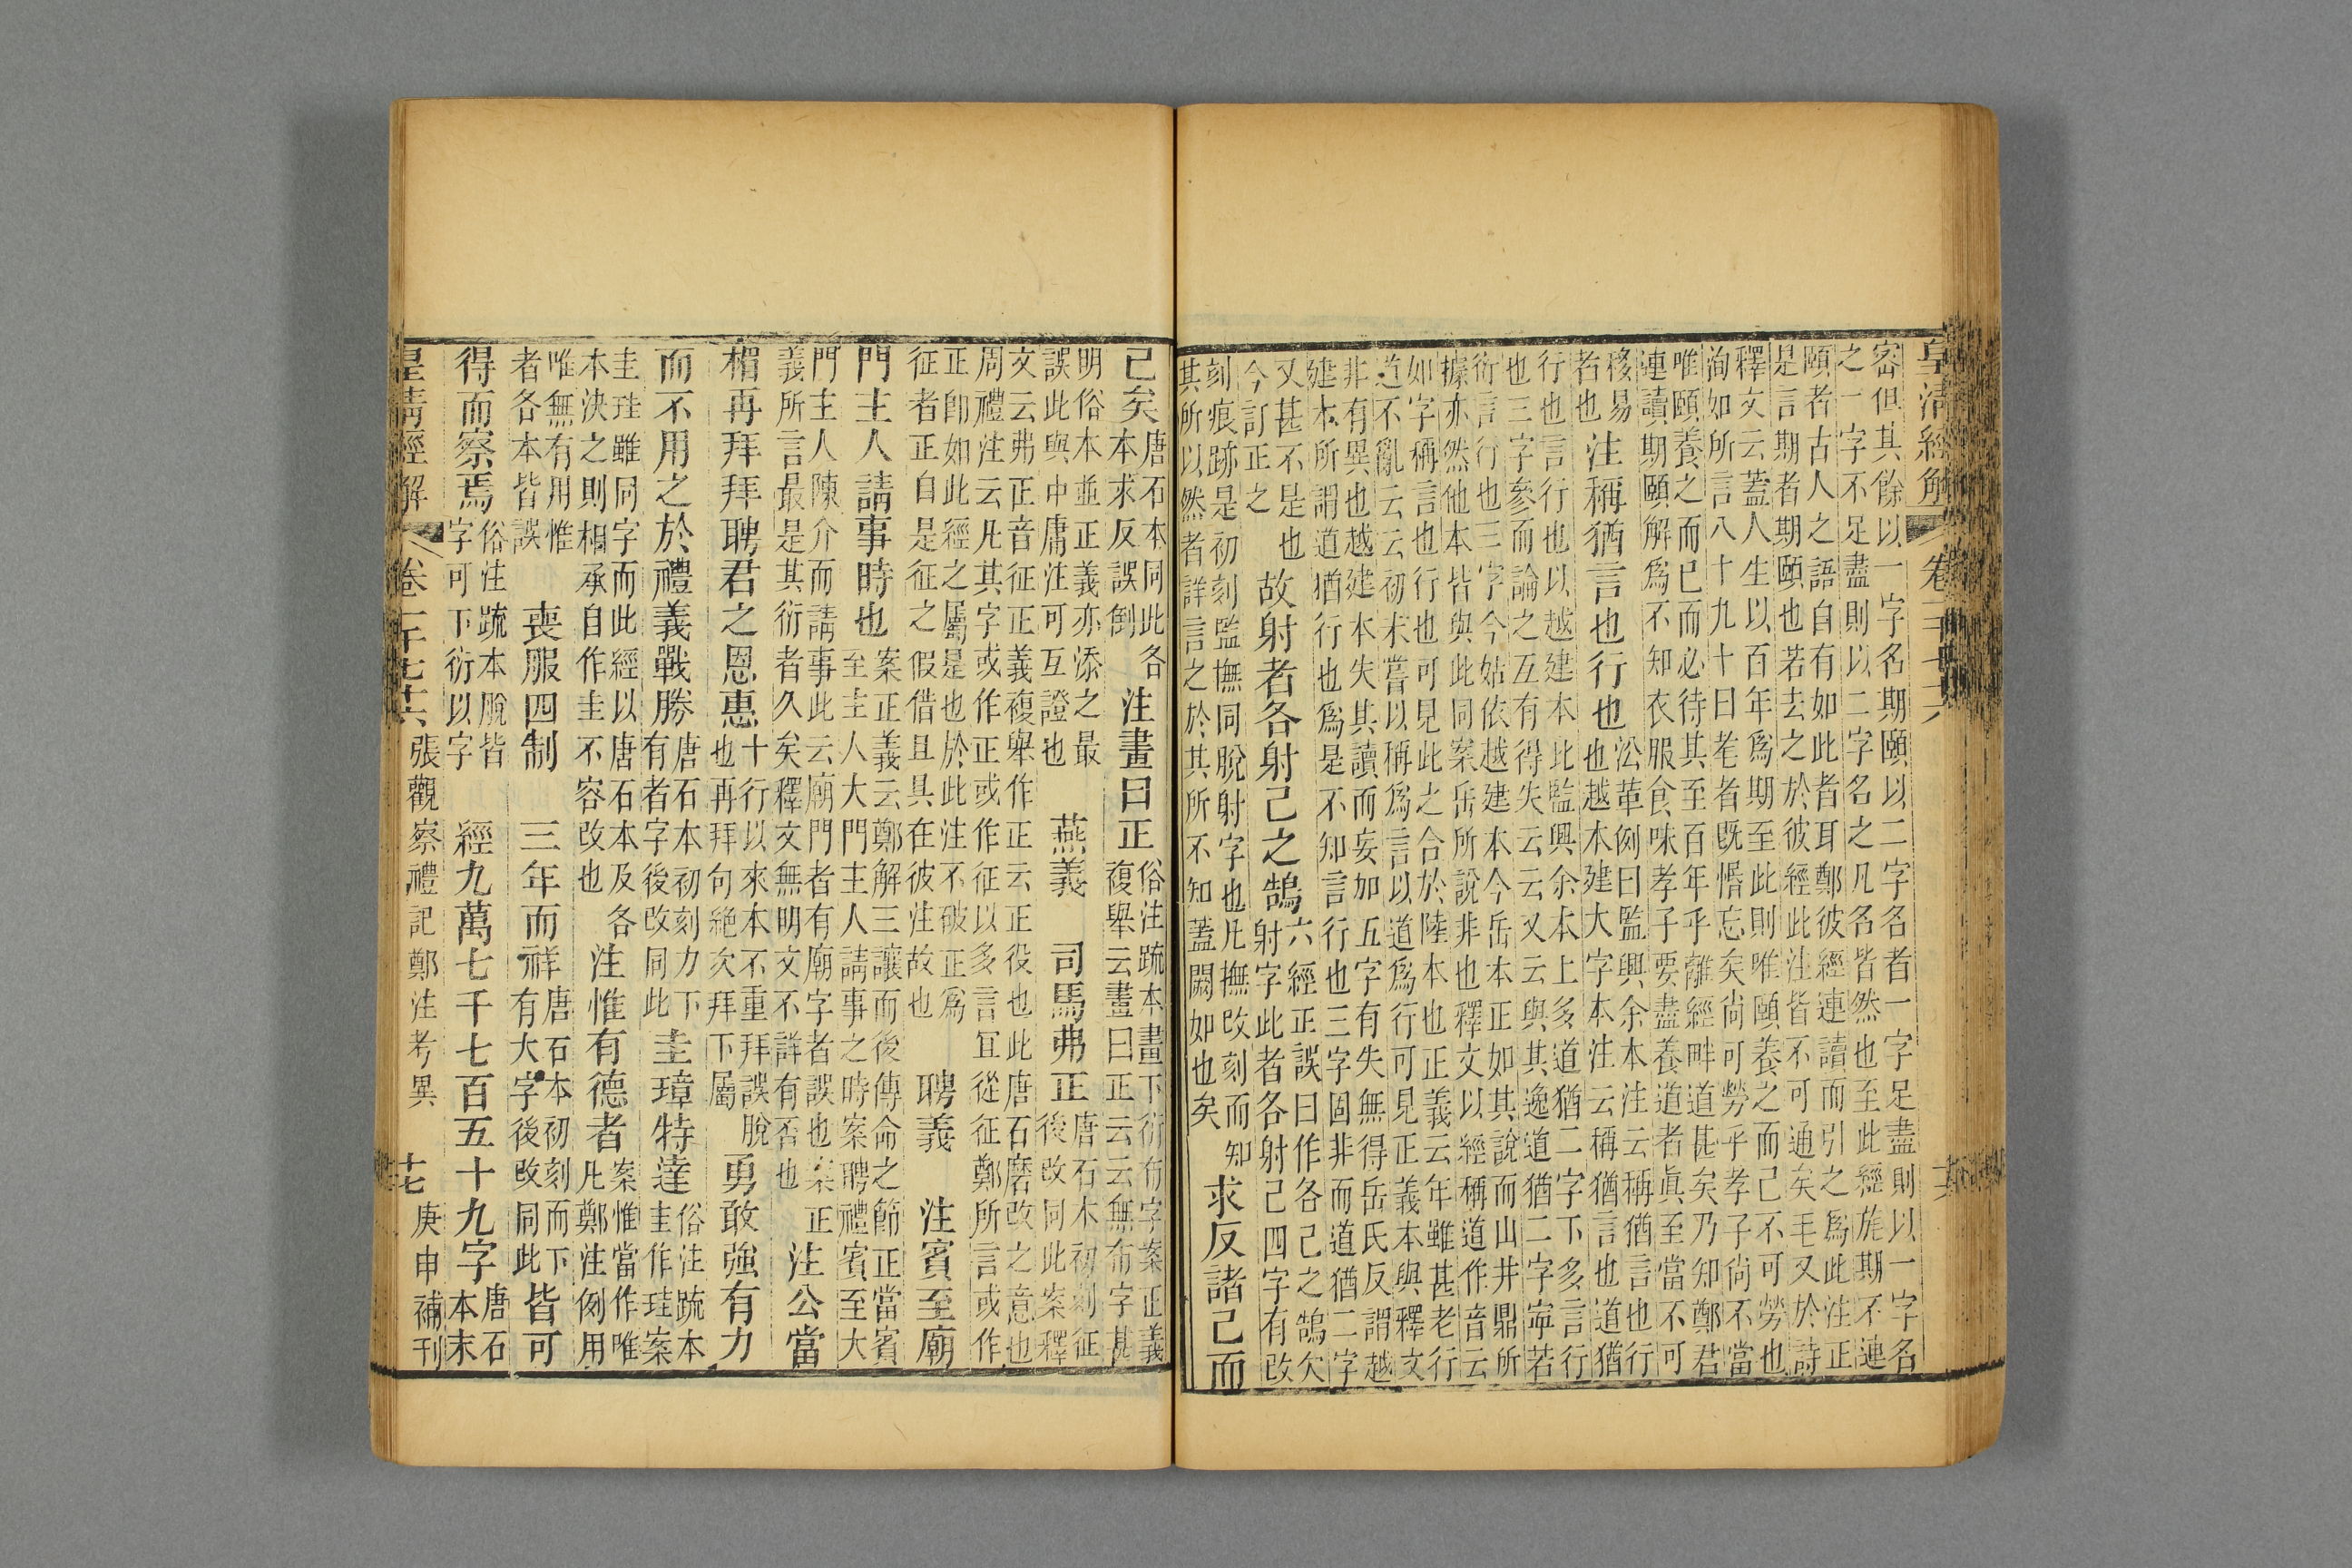 皇清經解 卷一千七十六
密但其餘以一字名期頤以二字名者一字足盡則以一字名
之一字不足盡則以二字名之凡名皆然也至此經旄期不連
頤者古人之語自有如此者耳鄭彼經連讀而引之爲此注正
是言期者期頤也若去之於彼經此注皆不可通矣毛又於詩
釋文云蓋人生以百年爲期至此則唯頤養之而已不可勞也
洵如所言八十九十曰耄者旣惛忘矣尙可勞乎孝子尙不當
唯頤養之而已而必待其至百年乎離經畔道甚矣乃知鄭君
連讀期頤解爲不知衣服食味孝子要盡養道者眞至當不可
移易
者也
注稱猶言也行也
㳂革例曰監興余本注云稱猶言也行
也越本建大字本注云稱猶言也道猶
行也言行也以越建本比監興余本上多道猶二字下多言行
也三字參而論之互有得失云云又云與其逸道猶二字寜若
衍言行也三字今姑依越建本今岳本正如其說而山井鼎所
據亦然他本皆與此同案岳所說非也釋文以經稱道作音云
如字稱言也行也可見此之合於陸本也正義云年雖甚老行
道不亂云云初末嘗以稱爲言以道爲行可見正義本與釋文
非有異也越建本失其讀而妄加五字有失無得岳氏反謂越
建本所謂道猶行也爲是不知言行也三字固非而道猶二字
又甚不是也
今訂正之
故射者各射己之鵠
六經正誤曰作各己之鵠欠
射字此者各射己四字有改
刻痕跡是初刻監撫同脫射字也凡撫改刻而知
其所以然者詳言之於其所不知蓋闕如也矣
求反諸己而
己矣
唐石本同此各
本求反誤倒
注畫曰正
俗注疏本畫下衍布字案正義
複舉云畫曰正云云無布字甚
明俗本並正義亦添之最
誤此與中庸注可互證也
燕義
司馬弗正
唐石本初刻征
後改同此案釋
文云弗正音征正義複舉作正云正役也此唐石磨改之意也
周禮注云凡其字或作正或作征以多言宜從征鄭所言或作
正卽如此經之屬是也於此注不破正爲
征者正自是征之假借且具在彼注故也
聘義
注賓至廟
門主人請事時也
案正義云鄭解三讓而後傳命之節正當賓
至主人大門主人請事之時案聘禮賓至大
門主人陳介而請事此云廟門者有廟字者誤也案正
義所言最是其衍者久矣釋文無明文不詳有否也
注公當
楣再拜拜聘君之恩惠
十行以來本不重拜誤脫
也再拜句絶次拜下屬
勇敢強有力
而不用之於禮義戰勝
唐石本初刻力下
有者字後改同此
圭璋特達
俗注疏本
圭作珪案
圭珪雖同字而此經以唐石本及各
本決之則相承自作圭不容改也
注惟有德者
案惟當作唯
凡鄭注例用
唯無有用惟
者各本皆誤
喪服四制
三年而祥
唐石本初刻而下
有大字後改同此
皆可
得而察焉
俗注疏本脫皆
字可下衍以字
經九萬七千七百五十九字
唐石
本末
皇清經解 卷一千七十六 張觀察禮記鄭注考異 十七 庚申補刊